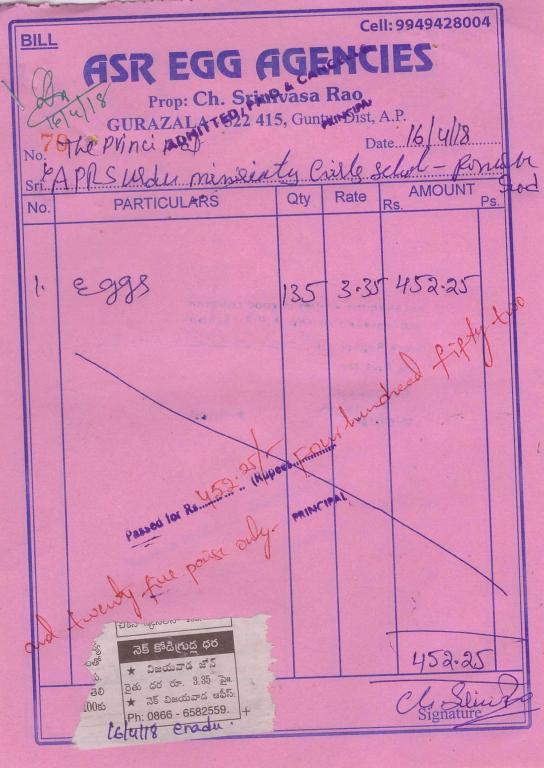 BILL
Cell: 9949428004
ASR EGG AGENCIES
Prop: Ch. Srinivasa Rao
GURAZALA - 522 415, Guntur Dist, A.P.
16/4/18
ADMITTED, PAID & CANCELLED
PRINCIPAL
No. 79 The Principal Date 16/4/18
Sri APRS Urdu Girls School -
No. PARTICULARS Qty Rate AMOUNT
Rs. Ps.
1. Eggs 135 3.35 452.25
Passed for Rs. 452.25/- (Rupees Four hundred fifty-two
and twenty five paise only.
PRINCIPAL
నెక్ కోడిగ్రుడ్ల ధర
★ విజయవాడ జోన్
రైతు ధర రూ. 3.35 పై॥
★ నెక్ విజయవాడ ఆఫీస్
Ph: 0866 - 6582559.
16/4/18 eradu.
452.25
Signature